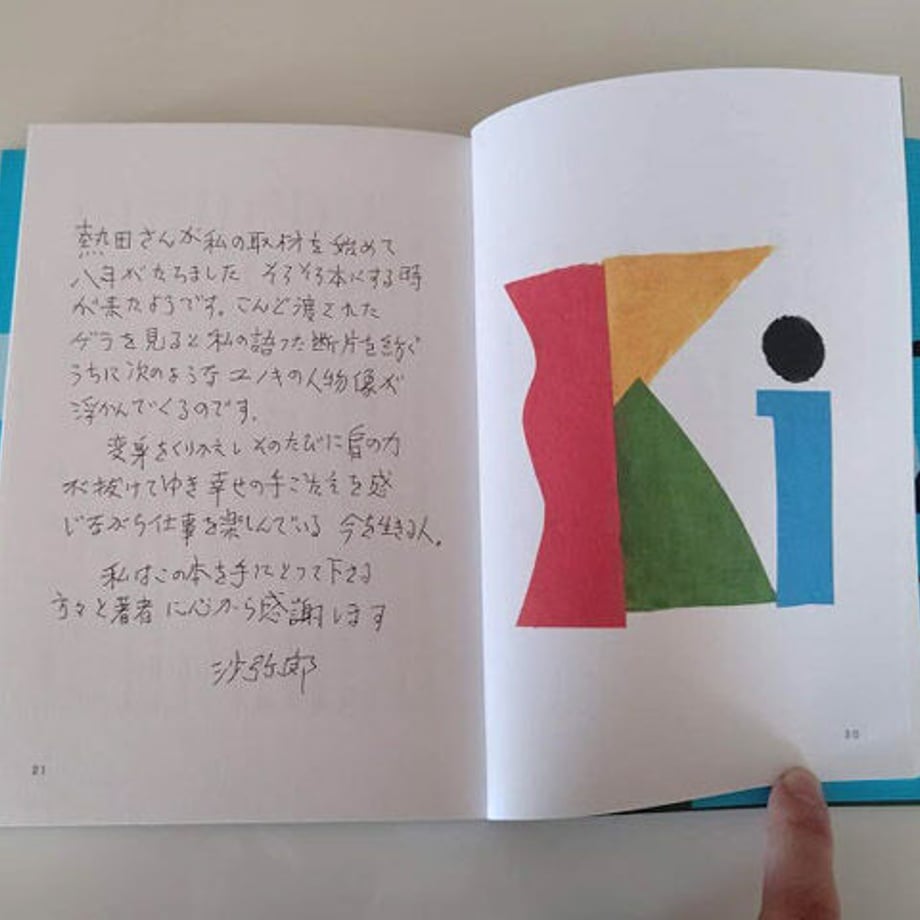 Ki
20
熱田さんが私の取材を始めて
八年がたちました そろそろ本にする時
が来たようです。こんど渡された
ゲラを見ると私の語った断片を紡ぐ
うちに次のような ユノキの人物像が
浮かんでくるのです。
変身をくりかえし そのたびに肩の力
が抜けてゆき 幸せの手ごたえを感
じながら仕事を楽しんでいる 今を生きる人。
私はこの本を手にとって下さる
方々と著者に心から感謝します
沙弥郎
21